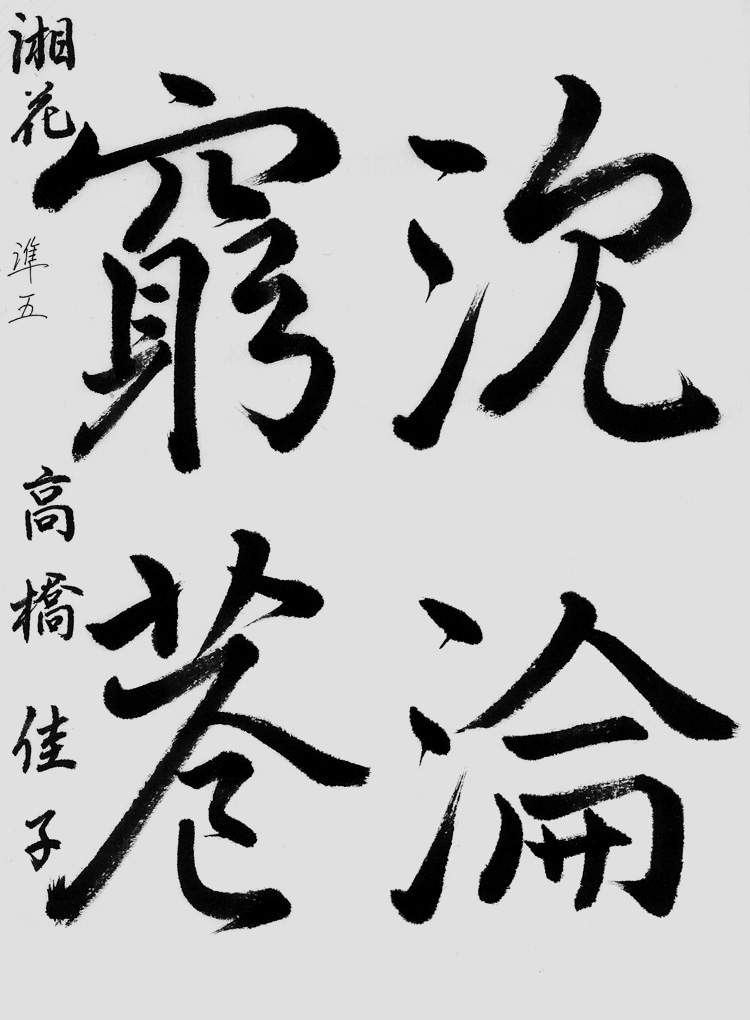 沈淪
窮巷
湘花 準五 高橋佳子